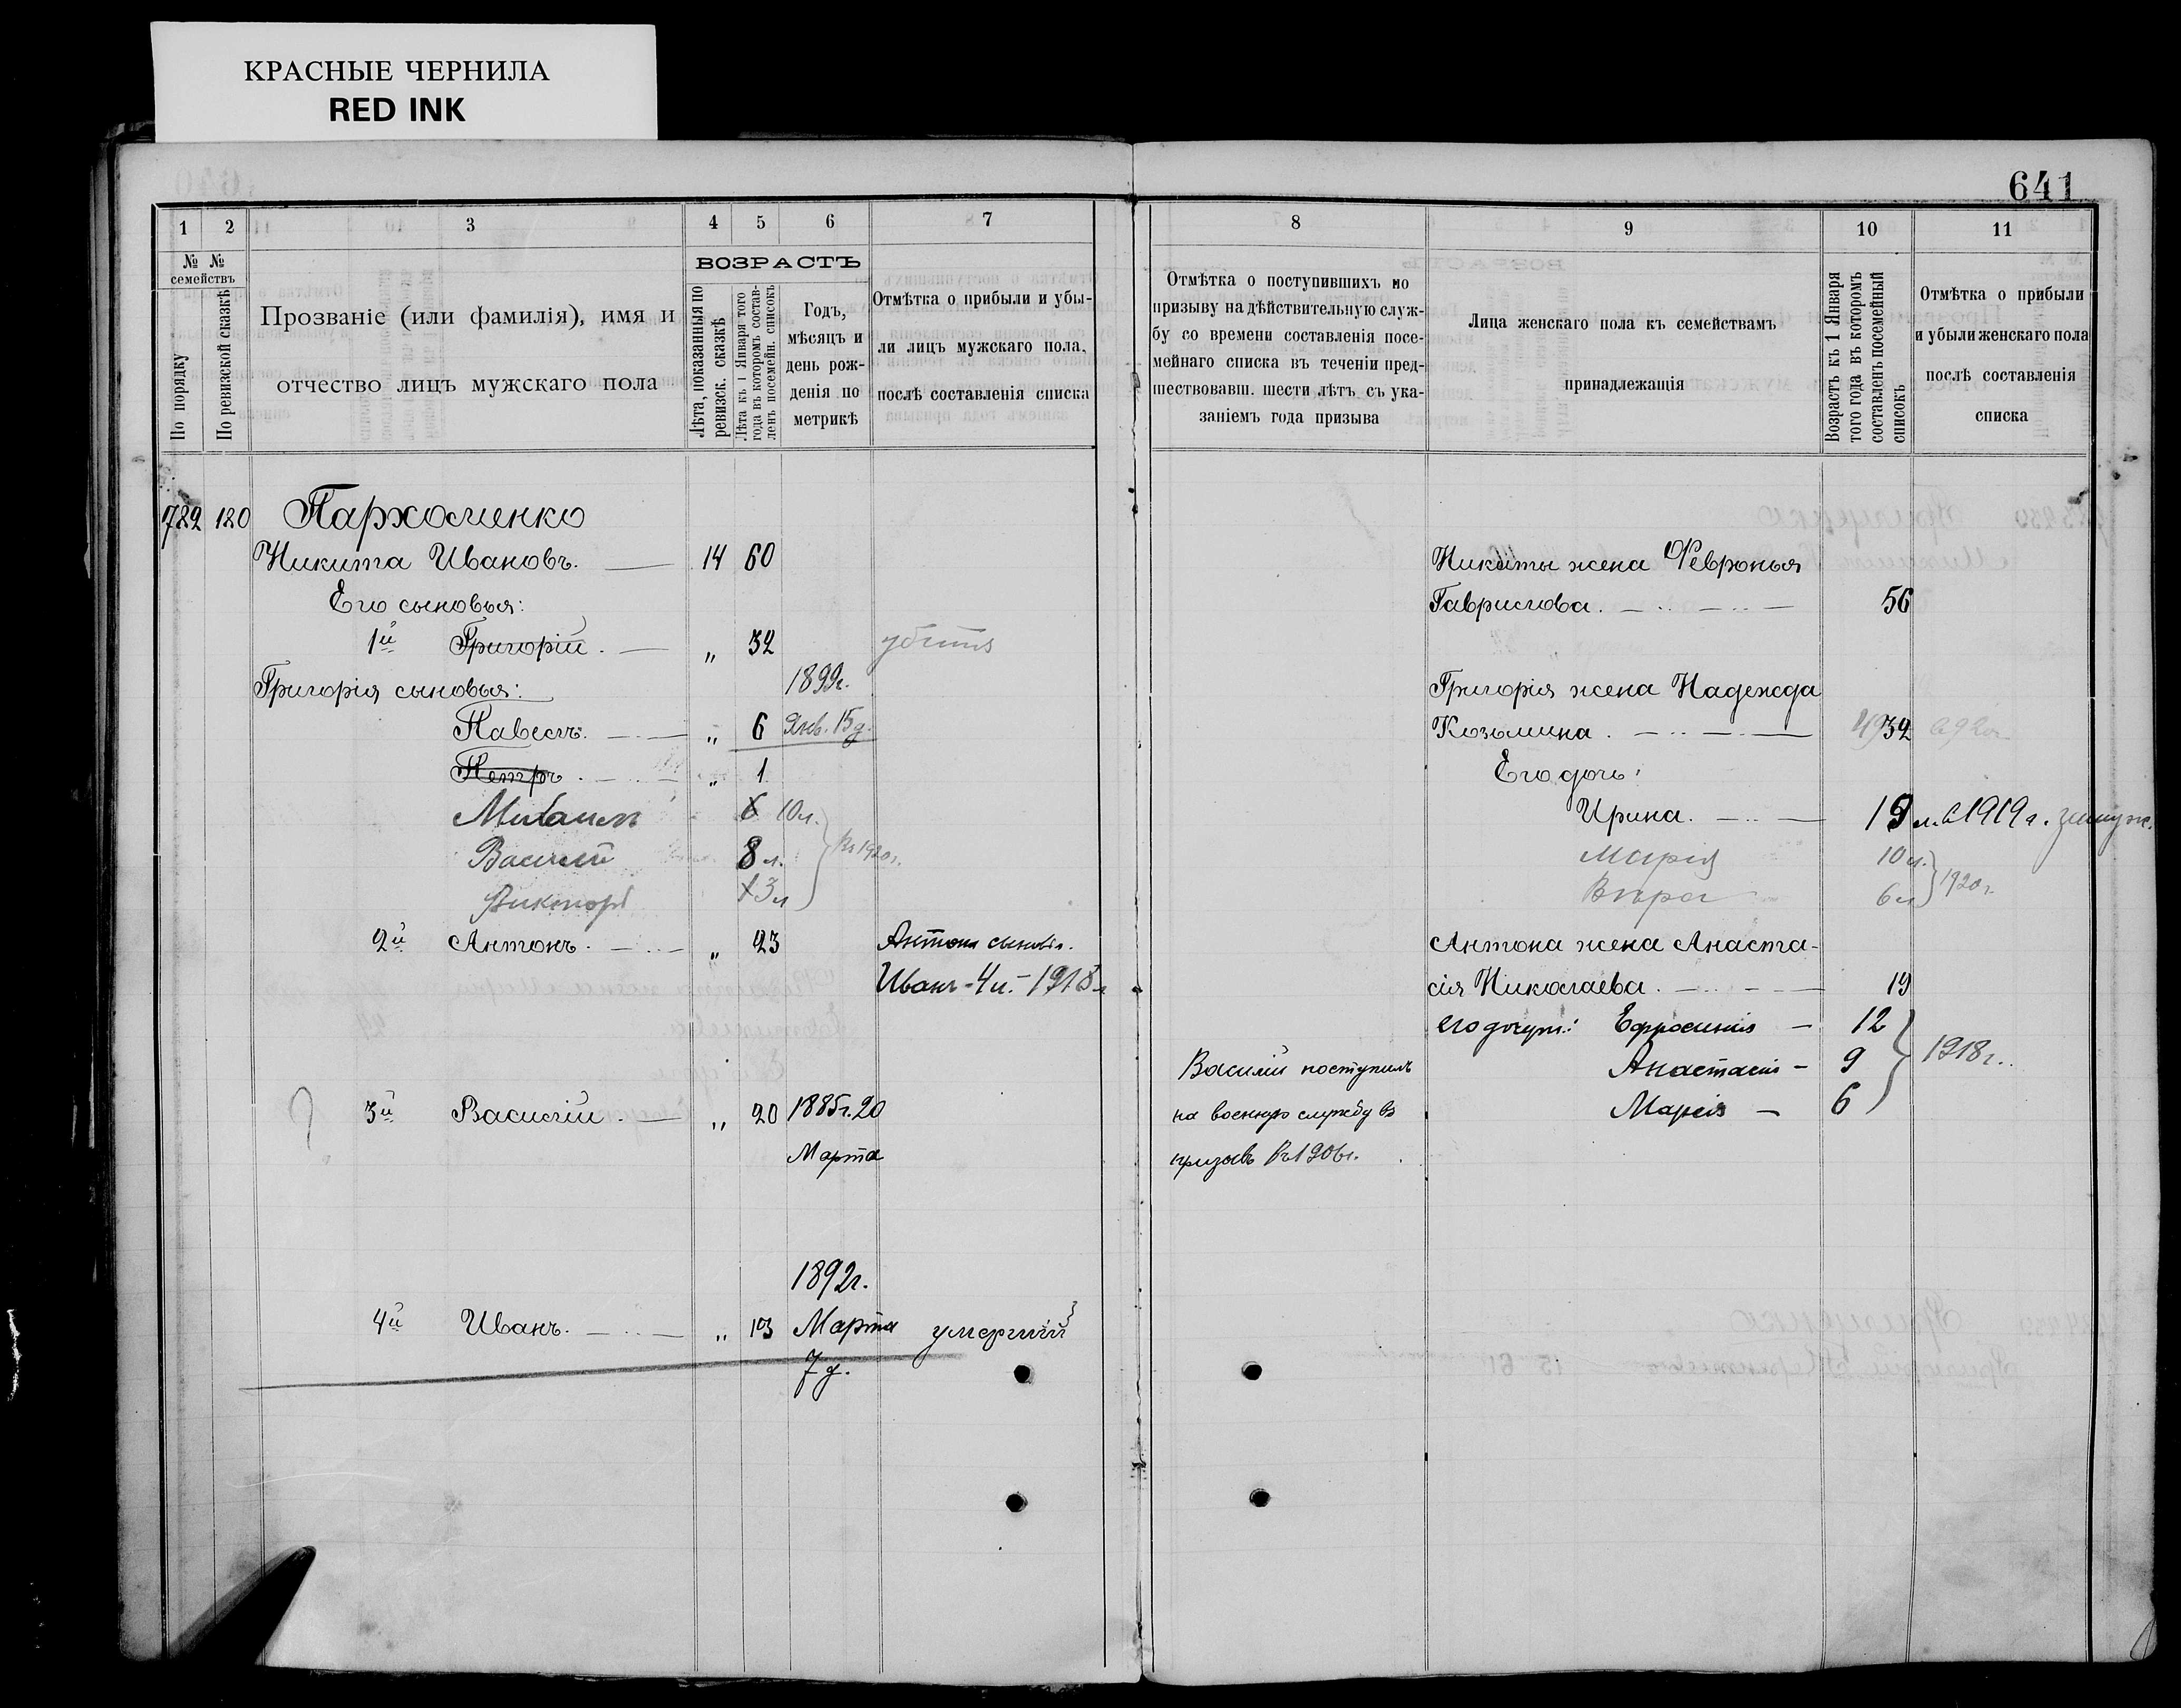 КРАСНЫЕ ЧЕРНИЛА
RED INK
641
1 2 3 4 5 6 7
№ № семействъ
По порядку
По ревизской сказкѣ
Прозваніе (или фамилія), имя и
отчество лицъ мужскаго пола
ВОЗРАСТЪ
Лѣта, показанныя по
ревизск. сказкѣ
Лѣта къ 1 Января того
года въ которомъ состав-
ленъ посемейн. списокъ
Годъ,
мѣсяцъ и
день рож-
денія по
метрикѣ
Отмѣтка о прибыли и убы-
ли лицъ мужскаго пола,
послѣ составленія списка
782 120 Пархоменко
Никита Ивановъ. 14 60
Его сыновья:
1й Григорій. „ 32 убитъ
Григорія сыновья: 1899г.
Павелъ. „ 6 Янв. 15 д.
Петръ. „ 1
6 10л.
Василій 8 л. въ 1920г.
Викторъ 3л
2й Антонъ. „ 23 Антона сыновья.
Иванъ - 4 л. - 1918г
3й Василій. „ 20 1885г. 20
Марта
1892г.
4й Иванъ. „ 13 Марта умершій
7 д.
8 9 10 11
Отмѣтка о поступившихъ по
призыву на дѣйствительную служ-
бу со времени составленія посе-
мейнаго списка въ теченіи пред-
шествовавш. шести лѣтъ съ ука-
заніемъ года призыва
Лица женскаго пола къ семействамъ
принадлежащія
Возрастъ къ 1 Января
того года въ которомъ
составленъ посемейный
списокъ
Отмѣтка о прибыли
и убыли женскаго пола
послѣ составленія
списка
Никиты жена Февронья
Гаврилова. 56
Григорія жена Надежда
Козьмина. 32
Его дочь:
Ирина. 19 л. в 1919 г. замуж.
Марія 10 л.
Вѣра 6 л 1920 г.
Антона жена Анаста-
сія Николаева. 19
его дочери: Ефросинія — 12
Василій поступилъ Анастасія — 9 1918 г.
на военную службу въ Марія — 6
призывъ въ 1906г.